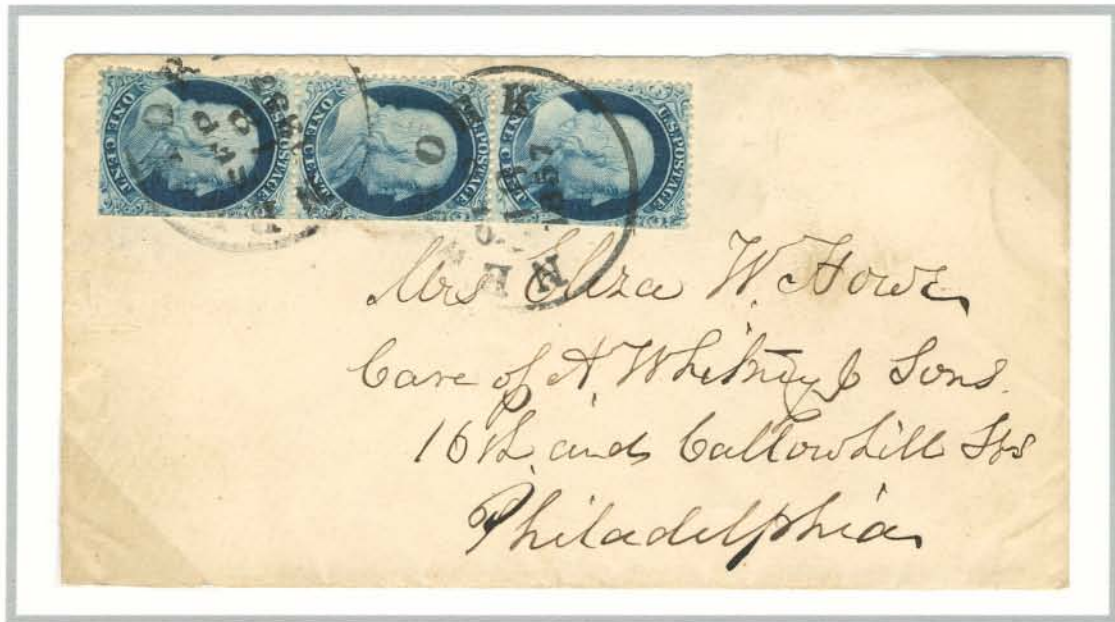 U.S. POSTAGE
ONE CENT
U.S. POSTAGE
ONE CENT
U.S. POSTAGE
ONE CENT
NEW YORK
1857
Mrs Eliza W. Howe
Care of A. Whitney & Sons.
16th and Callowhill Sts
Philadelphia